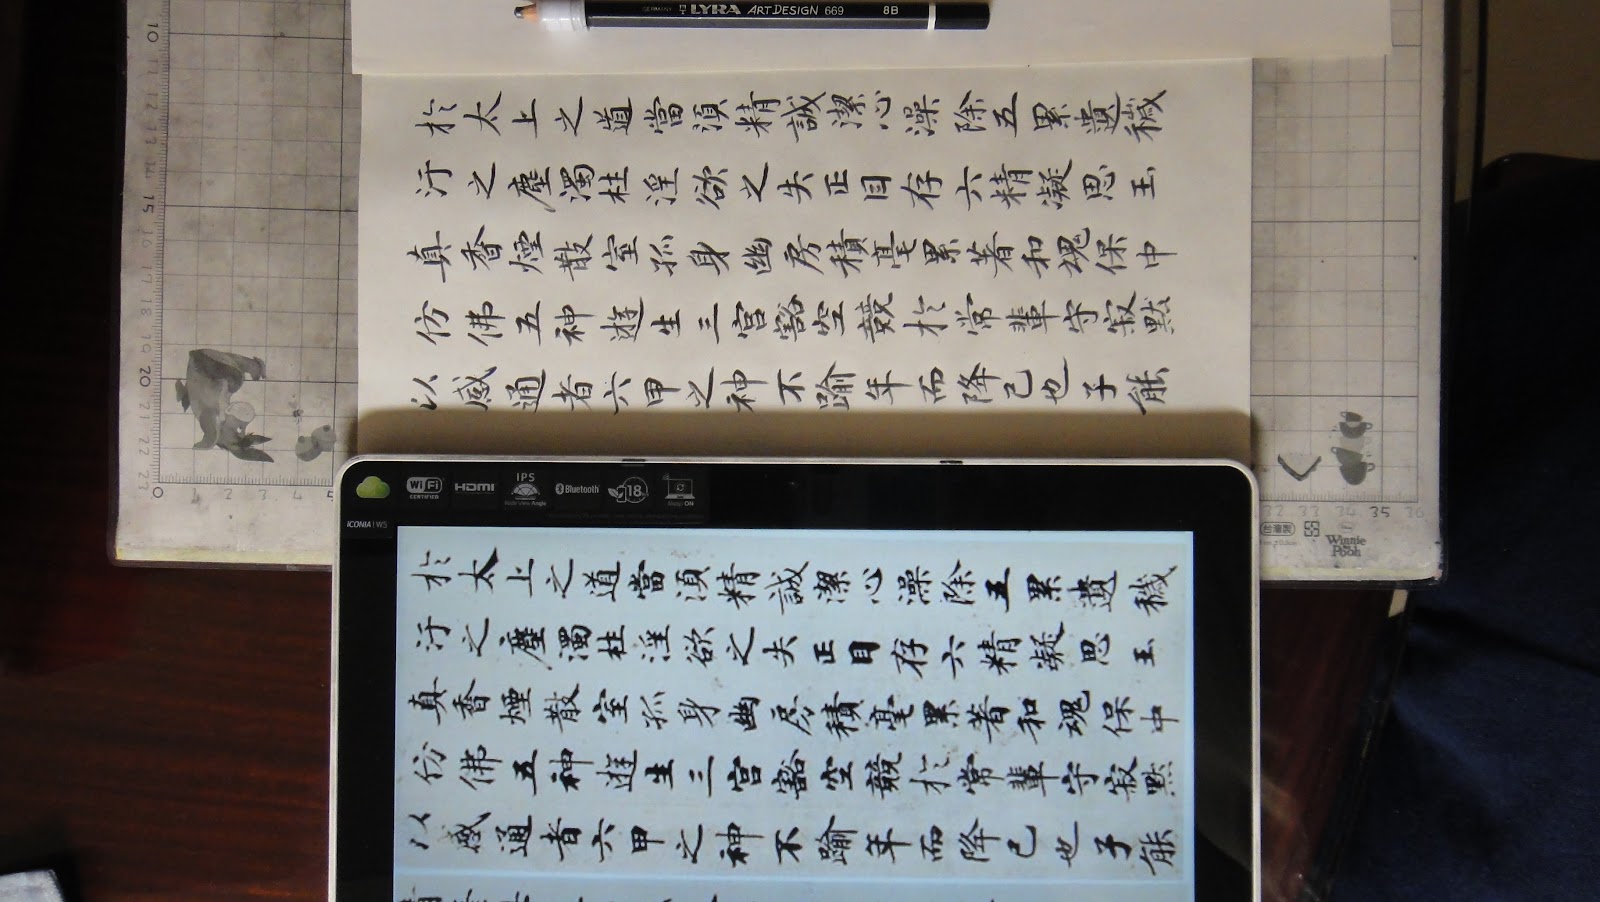 GERMANY LYRA ART DESIGN 669 8B
於太上之道當須精誠潔心澡除五累遺穢
汙之塵濁杜淫欲之失正目存六精凝思玉
真香煙散室孤身幽房積毫累著和魂保中
仿佛五神遊生三宮豁空競於常輩守寂默
以感通者六甲之神不踰年而降己也子能
WiFi CERTIFIED
HDMI
IPS
Wide View Angle
Bluetooth
18
Always ON
ICONIA W5
於太上之道當須精誠潔心澡除五累遺穢
汙之塵濁杜淫欲之失正目存六精凝思玉
真香煙散室孤身幽房積毫累著和魂保中
仿佛五神遊生三宮豁空競於常輩守寂默
以感通者六甲之神不踰年而降己也子能
10
11
12
13
14
15
16
17
18
19
20
21
22
23
0 1 2 3 4 5
32 33 34 35 36
台灣製
Winnie the Pooh